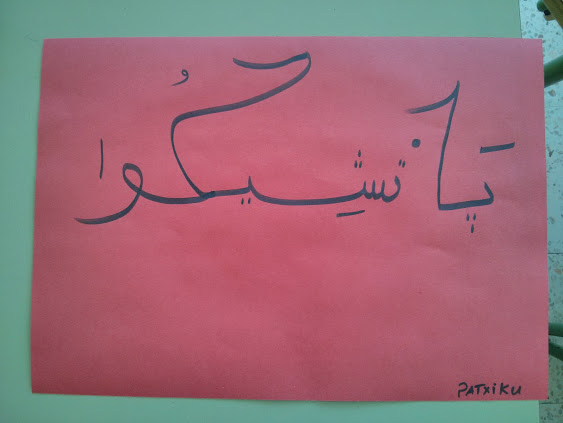 پَاتشِيكُوا
PATXiKU